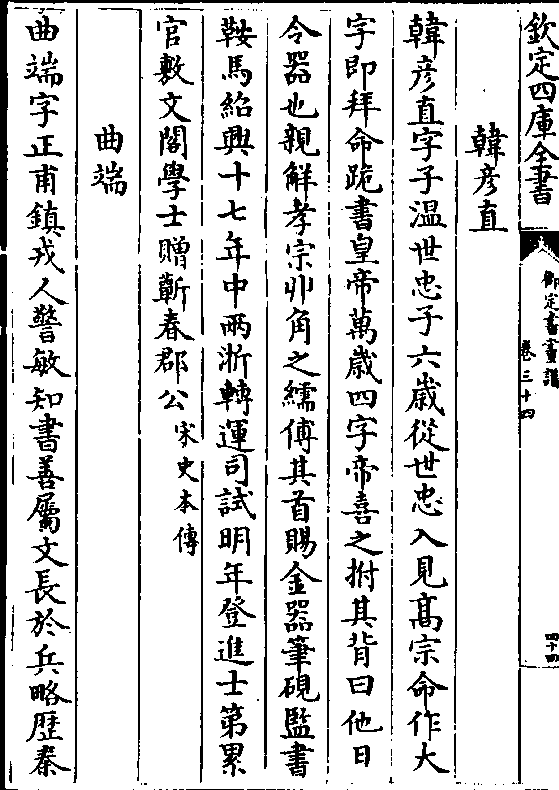 欽定四庫全書
御定書畫譜
卷三十四
四十四
韓彦直
韓彦直字子温世忠子六歳從世忠入見髙宗命作大
字即拜命跪書皇帝萬歳四字帝喜之拊其背曰他日
令器也親解孝宗丱角之繻傅其首賜金器筆硯監書
鞍馬紹興十七年中兩浙轉運司試明年登進士第累
官敷文閣學士贈蘄春郡公宋史本傳
曲端
曲端字正甫鎮戎人警敏知書善屬文長於兵略歴秦